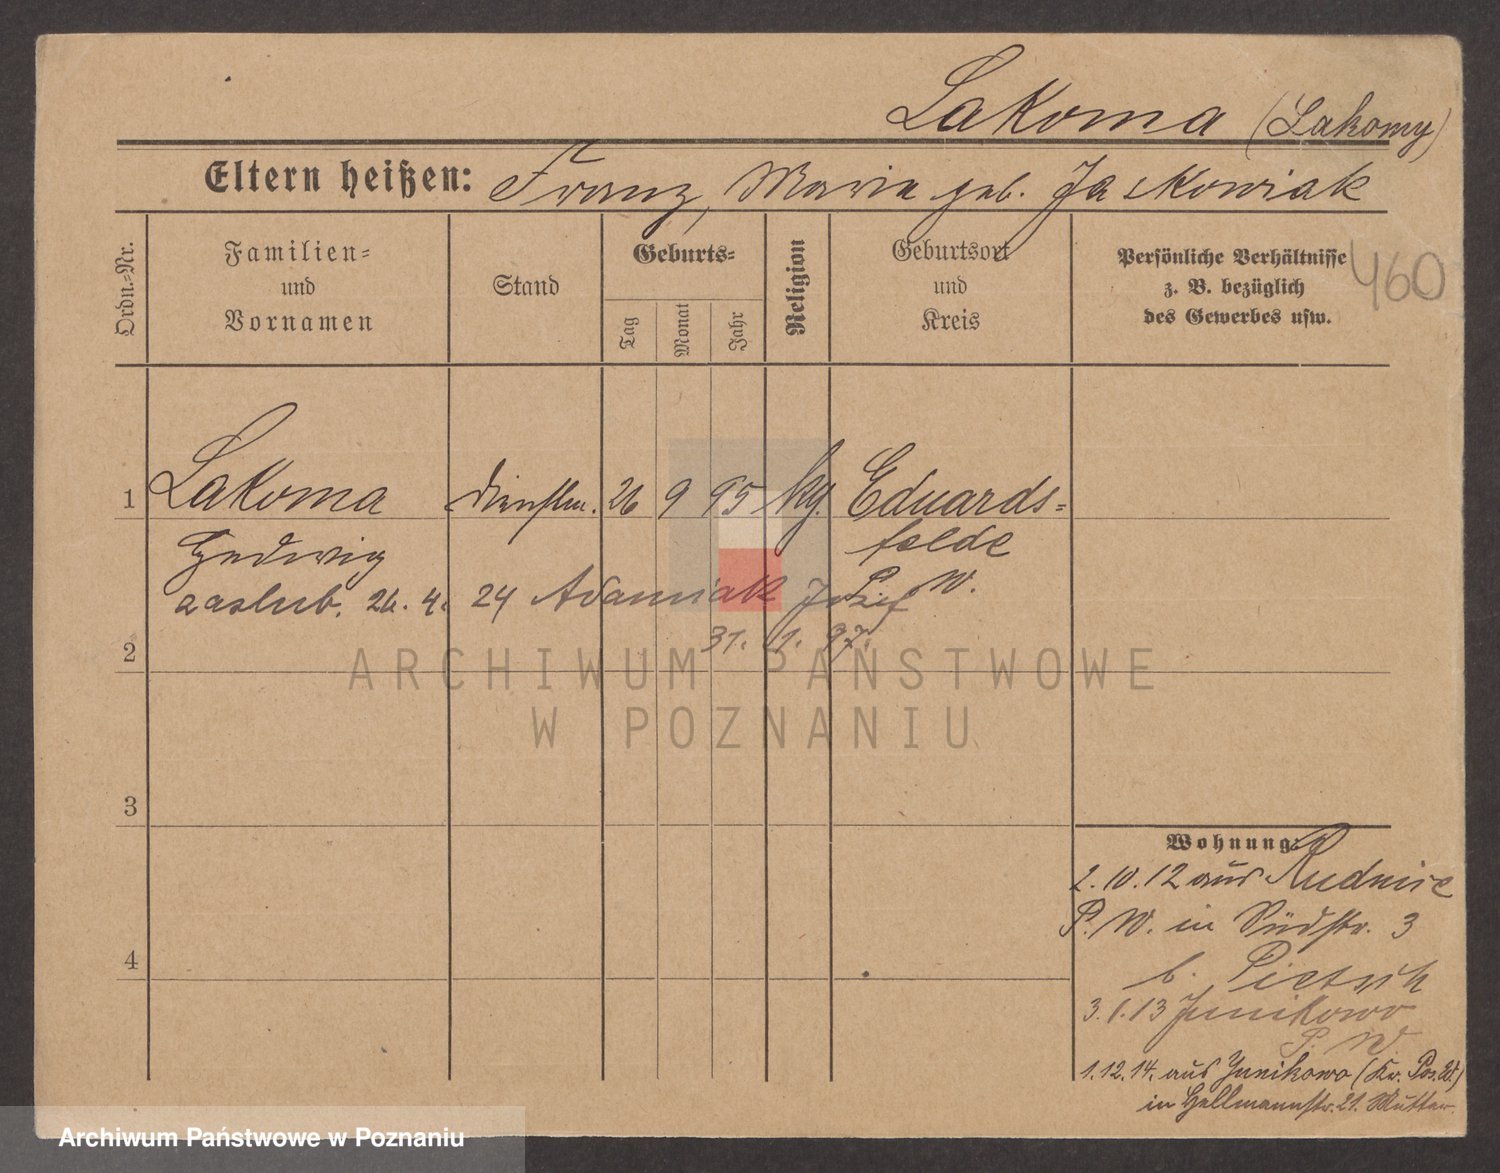 Lakoma (Lakomy)
Eltern heißen: Franz, Maria geb. Jaskowiak
Ordn.=Nr.
Familien= und Vornamen
Stand
Geburts=
Tag
Monat
Jahr
Religion
Geburtsort und Kreis
Persönliche Verhältnisse z. B. bezüglich des Gewerbes usw.
460
1
Lakoma
Dienstm.
26
9
95
kg.
Eduards=
Hedwig
felde
aaslub. 26. 4. 24 Adamiak Józef
P. W.
31. 1. 97.
2
ARCHIWUM PAŃSTWOWE
W POZNANIU
3
Wohnung:
2.10.12 aus Rudnice
P. W. in Südstr. 3
4
b. Pietsch
3.1.13 Junikowo
P. W.
1.12.14. aus Junikowo (Kr. Pos. W)
in Hellmannstr. 21. Mutter
Archiwum Państwowe w Poznaniu